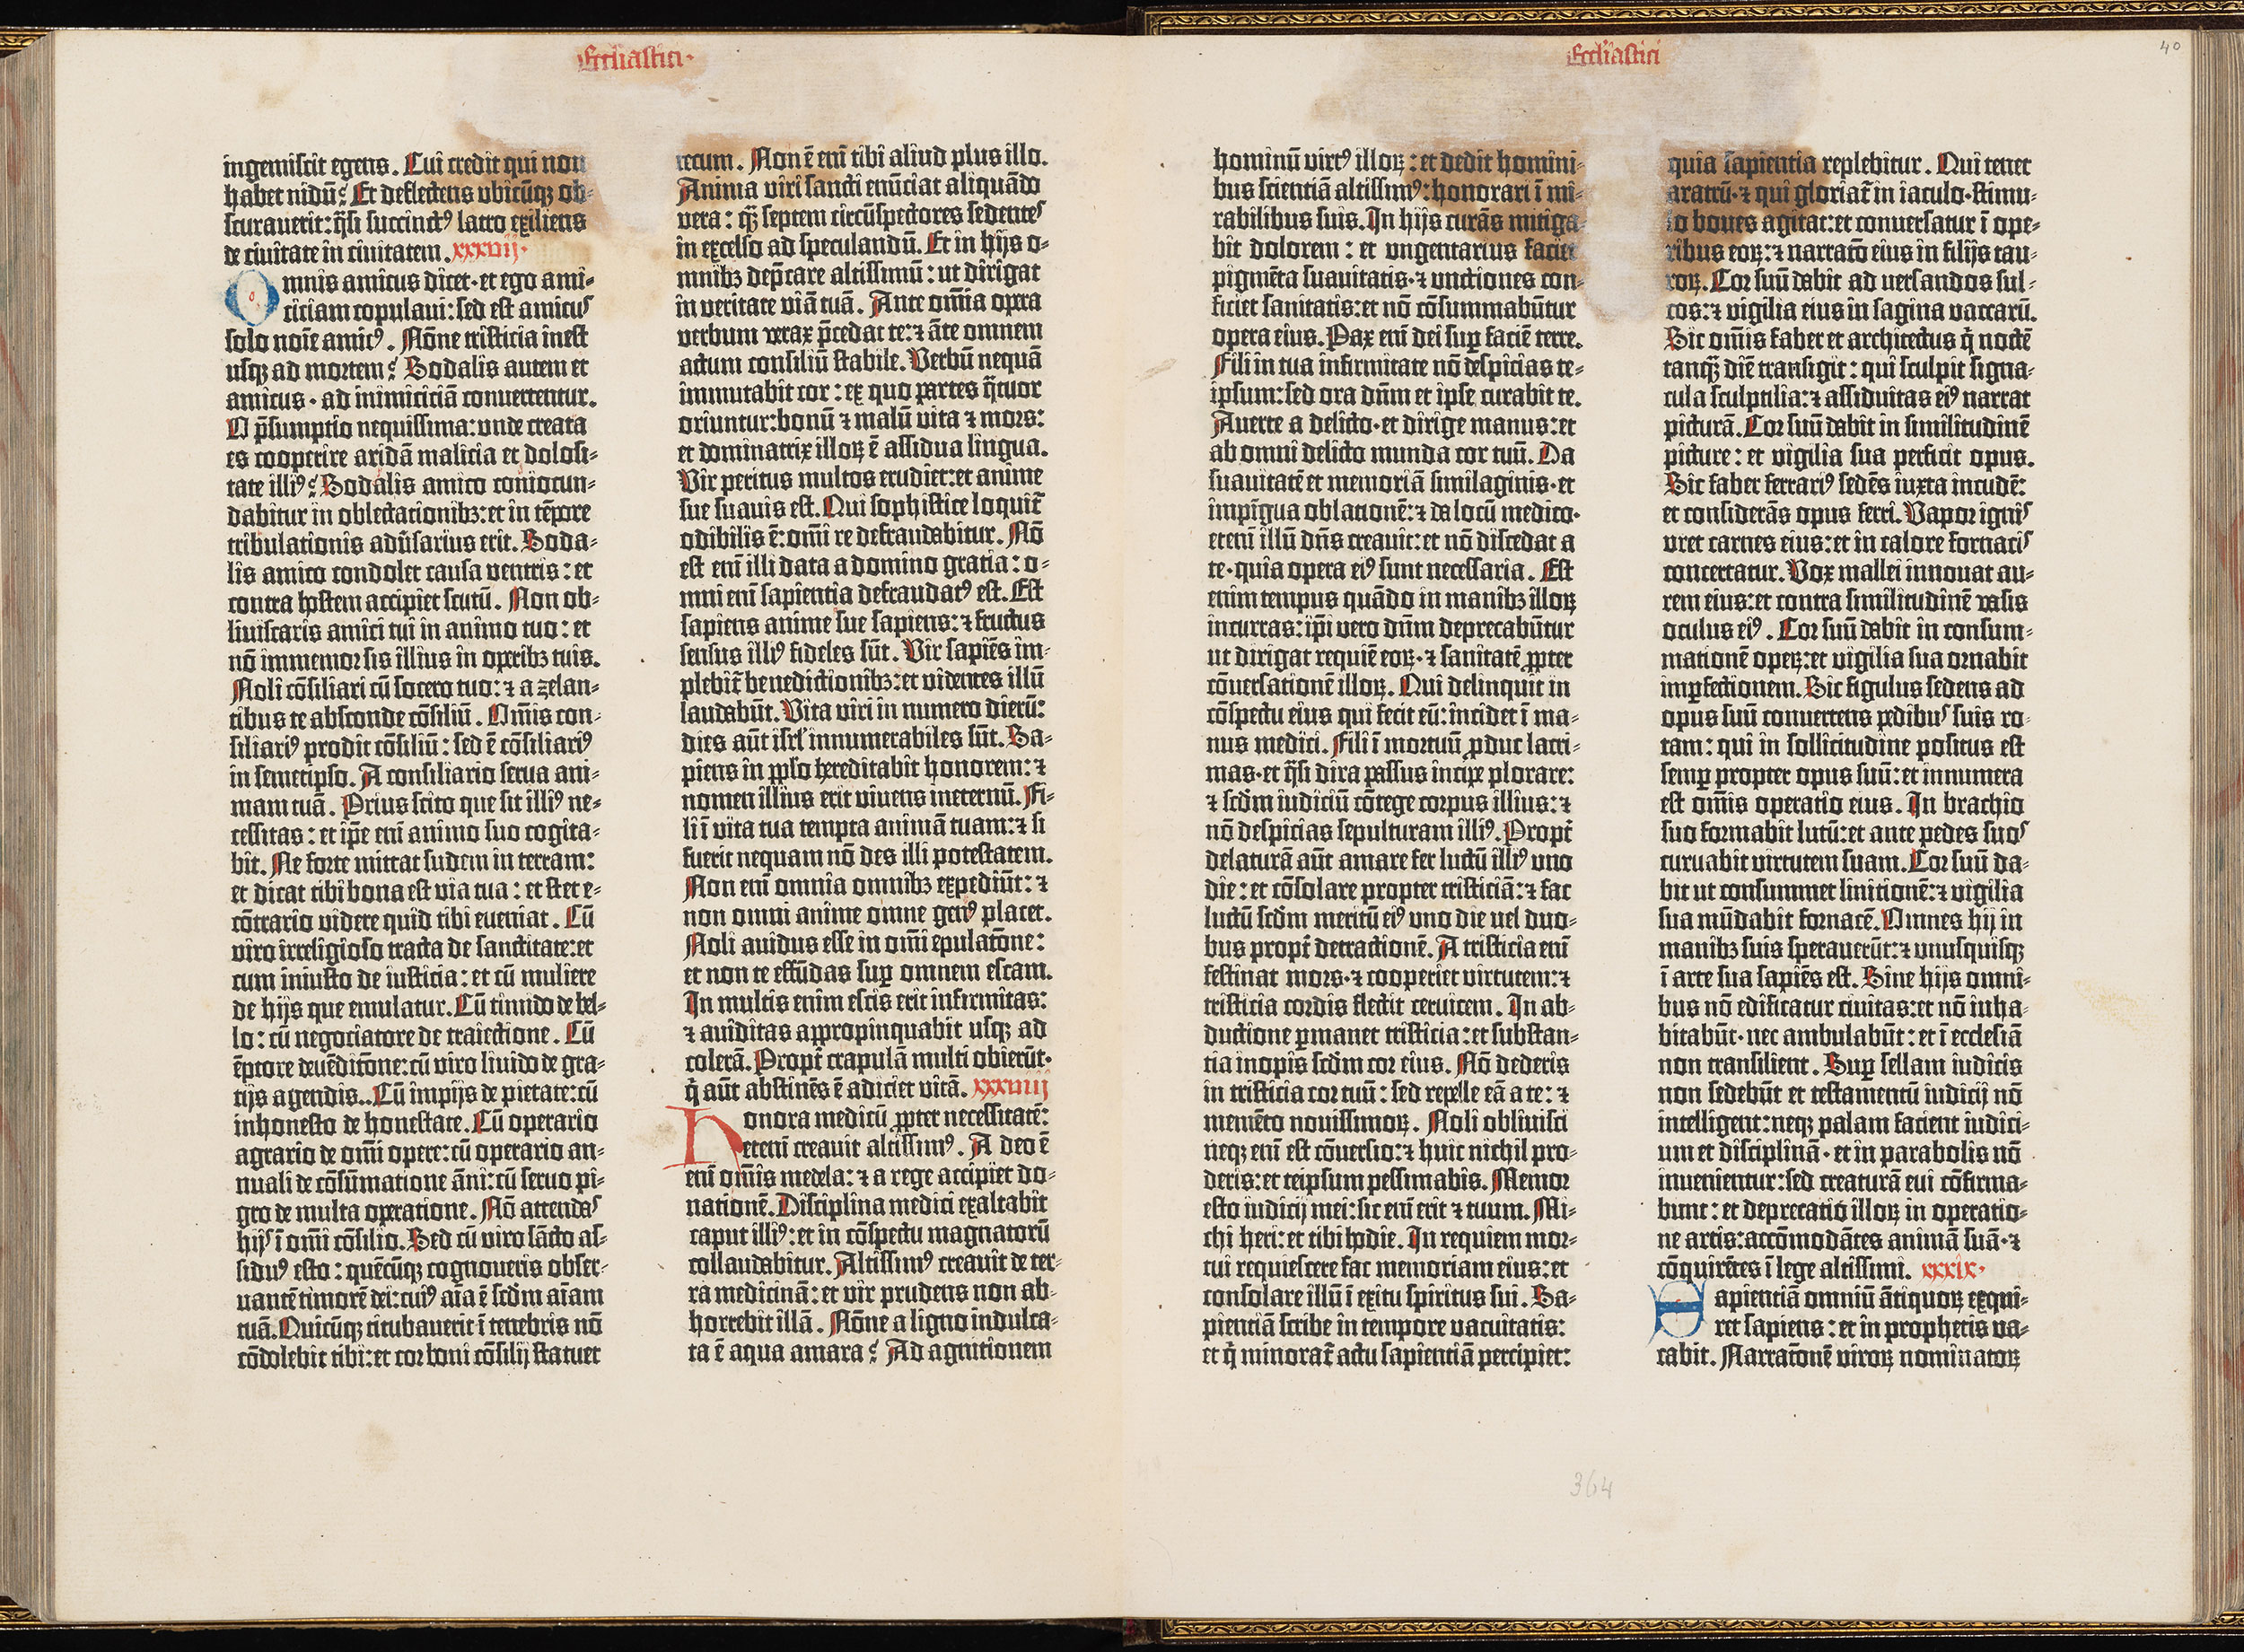 Ecclīastici.
ingemiscit egens. Cui credit qui non
habet nidū? Et deflectens ubicūqꝫ ob-
scurauerit: q̄si succinctꝰ latro exiliens
de ciuitate in ciuitatem. xxxvij.
Omnis amicus dicet. et ego ami-
ciciam copulaui: sed est amicus
solo noīe amicꝰ. Nōne tristicia inest
usqꝫ ad mortem? Sodalis autem et
amicus. ad inimiciciā conuertentur.
O p̄sumptio nequissima: unde creata
es cooperire aridā malicia et dolosi-
tate illiꝰ? Sodalis amico coniocun-
dabitur in oblectacionibꝫ: et in tēpore
tribulationis adūsarius erit. Soda-
lis amico condolet causa uentris: et
contra hostem accipiet scutū. Non ob-
liuiscaris amici tui in animo tuo: et
nō immemor sis illius in operibꝫ tuis.
Noli cōsiliari cū socero tuo: ⁊ a zelan-
tibus te absconde cōsiliū. Om̄is con-
siliariꝰ prodit cōsiliū: sed ē cōsiliariꝰ
in semetipso. A consiliario serua ani-
mam tuā. Prius scito que sit illiꝰ ne-
cessitas: et ip̄e enī animo suo cogita-
bit. Ne forte mittat sudem in terram:
et dicat tibi bona est uia tua: et stet e-
cōtrario uidere quid tibi eueniat. Cū
uiro irreligioso tracta de sanctitate: et
cum iniusto de iusticia: et cū muliere
de hijs que emulatur. Cū timido de bel-
lo: cū negociatore de traiectione. Cū
ēptore de uēditōne: cū uiro liuido de gra-
tijs agendis.. Cū impijs de pietate: cū
inhonesto de honestate. Cū operario
agrario de om̄i opere: cū operario an-
nuali de cōsūmatione āni: cū seruo pi-
gro de multa operatione. Nō attendas
hijs ī om̄i cōsilio. Sed cū uiro sācto as-
siduꝰ esto: quēcūqꝫ cognoueris obser-
uantē timorē dei: cuiꝰ aīa ē scd̄m aīam
tuā. Quicūqꝫ titubauerit ī tenebris nō
cōdolebit tibi: et cor boni cōsilij statuet
tecum. Non ē enī tibi aliud plus illo.
Anima uiri sancti enūciat aliquādo
uera: q̄ꝫ septem circūspectores sedentes
in excelso ad speculandū. Et in hijs o-
mnibꝫ dep̄care altissimū: ut dirigat
in ueritate uiā tuā. Ante om̄ia opera
uerbum uerax p̄cedat te: ⁊ āte omnem
actum consiliū stabile. Verbū nequā
immutabit cor: ex quo partes q̄tuor
oriuntur: bonū ⁊ malū uita ⁊ mors:
et dominatrix illoꝝ ē assidua lingua.
Vir peritus multos erudiet: et anime
sue suauis est. Qui sophistice loquit̄
odibilis ē: om̄i re defraudabitur. Nō
est enī illi data a domino gratia: o-
mni enī sapientia defraudatꝰ est. Est
sapiens anime sue sapiens: ⁊ fructus
sensus illiꝰ fideles sūt. Vir sapiēs im-
plebit̄ benedictionibꝫ: et uidentes illū
laudabūt. Vita uiri in numero dierū:
dies aūt isrl̄ innumerabiles sūt. Sa-
piens in pp̄lo hereditabit honorem: ⁊
nomen illius erit uiuens ineternū. Fi-
li ī uita tua tempta animā tuam: ⁊ si
fuerit nequam nō des illi potestatem.
Non enī omnia omnibꝫ expediūt: ⁊
non omni anime omne genꝰ placet.
Noli auidus esse in om̄i epulatōne:
et non te effūdas suꝑ omnem escam.
In multis enim escis erit infirmitas:
⁊ auiditas appropinquabit usqꝫ ad
colerā. Propt̄ crapulā multi obierūt.
q̄ aūt abstinēs ē adiciet uitā. xxxviij
Honora medicū ꝓpter necessitatē:
etenī creauit altissimꝰ. A deo ē
enī om̄is medela: ⁊ a rege accipiet do-
nationē. Disciplina medici exaltabit
caput illiꝰ: et in cōspectu magnatorū
collaudabitur. Altissimꝰ creauit de ter-
ra medicinā: et uir prudens non ab-
horrebit illā. Nōne a ligno indulca-
ta ē aqua amara? Ad agnitionem
Ecclīastici
40
hominū uirtꝰ illoꝝ: et dedit homini-
bus scientiā altissimꝰ: honorari ī mi-
rabilibus suis. In hijs curās mitiga-
bit dolorem: et ungentarius faciet
pigmēta suauitatis. ⁊ unctiones con-
ficiet sanitatis: et nō cōsummabūtur
opera eius. Pax enī dei suꝑ faciē terre.
Fili in tua infirmitate nō despicias te-
ipsum: sed ora dn̄m et ipse curabit te.
Auerte a delicto. et dirige manus: et
ab omni delicto munda cor tuū. Da
suauitatē et memoriā similaginis. et
impīgua oblationē: ⁊ da locū medico.
etenī illū dn̄s creauit: et nō discedat a
te. quia opera eiꝰ sunt necessaria. Est
enim tempus quādo in manibꝫ illoꝝ
incurras: ip̄i uero dn̄m deprecabūtur
ut dirigat requiē eoꝝ. ⁊ sanitatē ꝓpter
cōuersationē illoꝝ. Qui delinquit in
cōspectu eius qui fecit eū: incidet ī ma-
nus medici. Fili ī mortuū ꝓduc lacri-
mas. et q̄si dira passus incipe plorare:
⁊ scd̄m iudiciū cōtege corpus illius: ⁊
nō despicias sepulturam illiꝰ. Propt̄
delaturā aūt amare fer luctū illiꝰ uno
die: et cōsolare propter tristiciā: ⁊ fac
luctū scd̄m meritū eiꝰ uno die uel duo-
bus propt̄ detractionē. A tristicia enī
festinat mors. ⁊ cooperiet uirtutem: ⁊
tristicia cordis flectit ceruicem. In ab-
ductione ꝑmanet tristicia: et substan-
tia inopis scd̄m cor eius. Nō dederis
in tristicia cor tuū: sed repelle eā a te: ⁊
memēto nouissimoꝝ. Noli obliuisci
neqꝫ enī est cōuersio: ⁊ huic nichil pro-
deris: et teipsum pessimabis. Memor
esto iudicij mei: sic enī erit ⁊ tuum. Mi-
chi heri: et tibi hodie. In requiem mor-
tui requiescere fac memoriam eius: et
consolare illū ī exitu spiritus sui. Sa-
pientiā scribe in tempore uacuitatis:
et q̄ minorat̄ actu sapientiā percipiet:
quia sapientia replebitur. Qui tenet
aratrū. ⁊ qui gloriat̄ in iaculo. stimu-
lo boues agitat: et conuersatur ī ope-
ribus eoꝝ: ⁊ narratō eius in filijs tau-
roꝝ. Cor suū dabit ad uersandos sul-
cos: ⁊ uigilia eius in sagina uaccarū.
Sic om̄is faber et architectus q̄ noctē
tanqꝫ̄ diē transigit: qui sculpit signa-
cula sculptilia: ⁊ assiduitas eiꝰ narrat
picturā. Cor suū dabit in similitudinē
picture: et uigilia sua perficit opus.
Sic faber ferrariꝰ sedēs iuxta incudē:
et considerās opus ferri. Vapor ignis
uret carnes eius: et in calore fornacis
concertatur. Vox mallei innouat au-
rem eius: et contra similitudinē uasis
oculus eiꝰ. Cor suū dabit in consum-
mationē opeꝝ: et uigilia sua ornabit
imꝑfectionem. Sic figulus sedens ad
opus suū conuertens pedibus suis ro-
tam: qui in sollicitudine positus est
semꝑ propter opus suū: et innumera
est om̄is operatio eius. In brachio
suo formabit lutū: et ante pedes suos
curuabit uirtutem suam. Cor suū da-
bit ut consummet linitionē: ⁊ uigilia
sua mūdabit fornacē. Omnes hij in
manibꝫ suis sperauerūt: ⁊ unusquisqꝫ
ī arte sua sapiēs est. Sine hijs omni-
bus nō edificatur ciuitas: et nō inha-
bitabūt. nec ambulabūt: et ī ecclesiā
non transilient. Suꝑ sellam iudicis
non sedebūt et testamentū iudicij nō
intelligent: neqꝫ palam facient iudici-
um et disciplinā. et in parabolis nō
inuenientur: sed creaturā eui cōfirma-
bunt: et deprecatio illoꝝ in operatio-
ne artis: accōmodātes animā suā. ⁊
cōquirētes ī lege altissimi. xxxix.
Sapientiā omniū ātiquoꝝ exqui-
ret sapiens: et in prophetis ua-
cabit. Narratōnē uiroꝝ nominatoꝝ
364